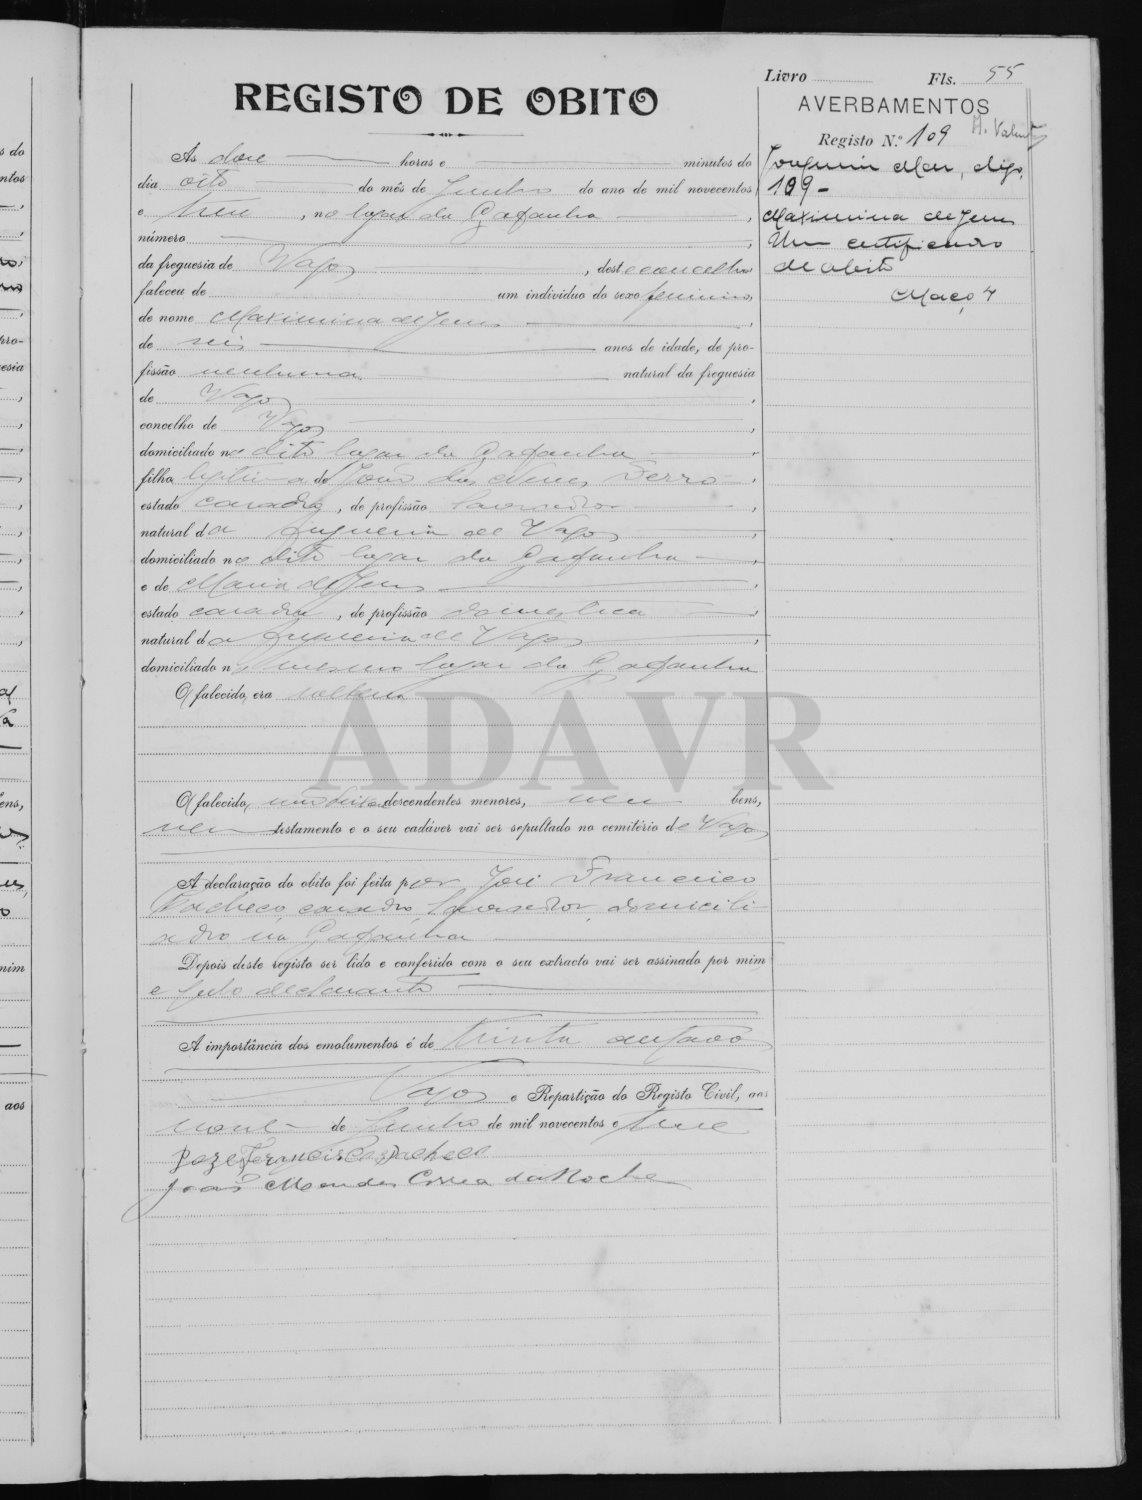 Livro Fls. 55
REGISTO DE OBITO
AVERBAMENTOS
Registo N.º 109
Joaquim Mar, digo,
109 -
Maximina de Jesus
Um certificado
de obito
Maço 4
As doze horas e minutos do
dia oito do mês de Junho do ano de mil novecentos
e treze, no lugar da Gafanha,
número
da freguesia de Vagos, deste concelho
faleceu de um individuo do sexo feminino
de nome Maximina de Jesus
de seis anos de idade, de pro-
fissão nenhuma natural da freguesia
de Vagos,
concelho de Vagos,
domiciliado no dito lugar da Gafanha
filha legitima de João das Neves Ferro
estado casado, de profissão lavrador,
natural da freguesia de Vagos,
domiciliado no dito lugar da Gafanha,
e de Maria de Jesus,
estado casada, de profissão domestica,
natural da freguesia de Vagos,
domiciliado no mesmo lugar da Gafanha
O falecido, era solteira
ADAVR
O falecido, não deixa descendentes menores, nem bens,
nem testamento e o seu cadáver vai ser sepultado no cemitério de Vagos
A declaração do obito foi feita por José Francisco
Pacheco, casado, lavrador, domicili-
ado na Gafanha
Depois deste registo ser lido e conferido com o seu extracto vai ser assinado por mim
e pelo declarante
A importância dos emolumentos é de trinta centavos
Vagos e Repartição do Registo Civil, aos
nove de Junho de mil novecentos e treze
Joze Francisco Pacheco
João Mendes Correa da Rocha